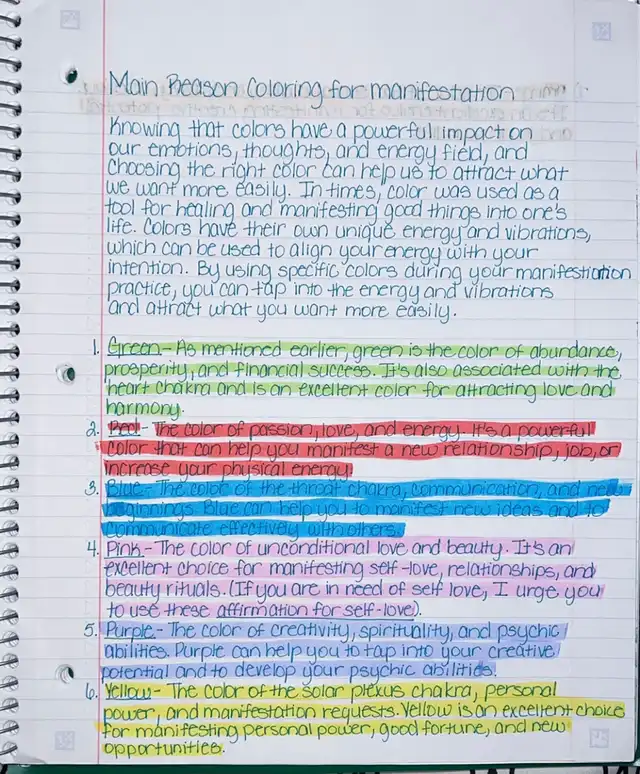 Main Reason Coloring for manifestation
Knowing that colors have a powerful impact on
our emotions, thoughts, and energy field, and
choosing the right color can help us to attract what
we want more easily. In times, color was used as a
tool for healing and manifesting good things into one's
life. Colors have their own unique energy and vibrations,
which can be used to align your energy with your
intention. By using specific colors during your manifestation
practice, you can tap into the energy and vibrations
and attract what you want more easily.
1. Green - As mentioned earlier, green is the color of abundance,
prosperity, and financial success. It's also associated with the
heart chakra and is an excellent color for attracting love and
harmony.
2. Red - The color of passion, love, and energy. It's a powerful
color that can help you manifest a new relationship, job, or
increase your physical energy.
3. Blue - The color of the throat chakra, communication, and new
beginnings. Blue can help you to manifest new ideas and to
communicate effectively with others.
4. Pink - The color of unconditional love and beauty. It's an
excellent choice for manifesting self-love, relationships, and
beauty rituals. (If you are in need of self love, I urge you
to use these affirmation for self-love).
5. Purple - The color of creativity, spirituality, and psychic
abilities. Purple can help you to tap into your creative
potential and to develop your psychic abilities.
6. Yellow - The color of the solar plexus chakra, personal
power, and manifestation requests. Yellow is an excellent choice
for manifesting personal power, good fortune, and new
opportunities.